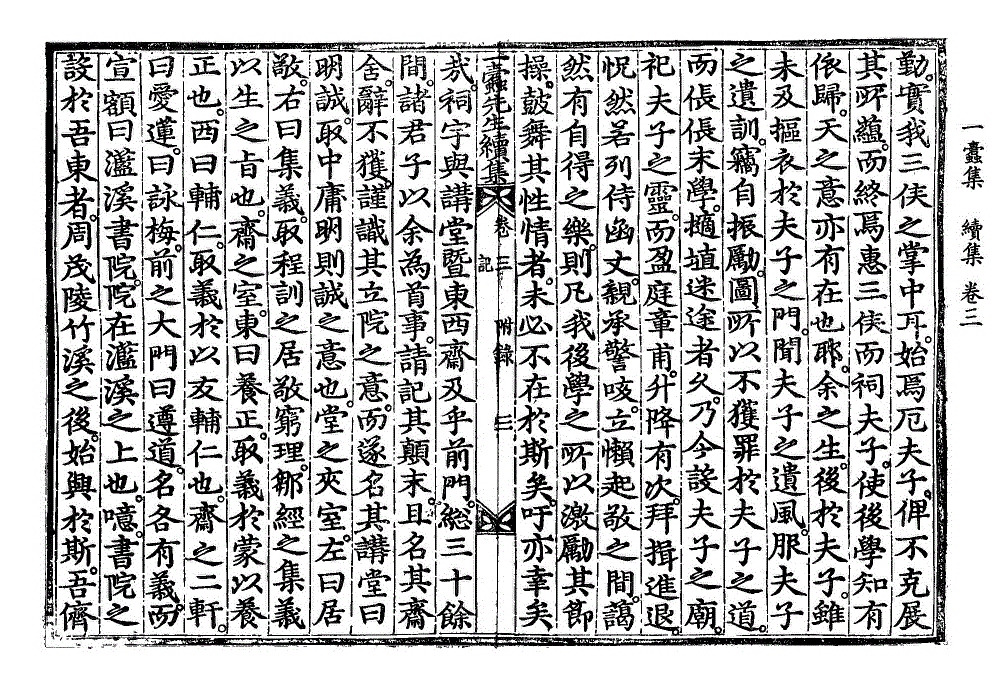 一蠹集　續集　卷三
勤。實我三侯之掌中耳。始焉厄夫子。俾不克展
其所蘊。而終焉惠三侯而祠夫子。使後學知有
依歸。天之意亦有在也耶。余之生。後於夫子。雖
未及摳衣於夫子之門。聞夫子之遺風。服夫子
之遺訓。竊自振勵。圖所以不獲罪於夫子之道。
而倀倀末學。擿埴迷途者久。乃今設夫子之廟。
祀夫子之靈。而盈庭童甫。升降有次。拜揖進退。
怳然若列侍函丈。親承警咳。立懶起敬之間。藹
然有自得之樂。則凡我後學之所以激勵其節
操。皷舞其性情者。未必不在於斯矣。吁亦幸矣
一蠹先生續集　卷三　記　附錄　三
哉。祠宇與講堂曁東西齋及乎前門。総三十餘
間。諸君子以余為首事。請記其顛末。且名其齋
舍。辭不獲。謹識其立院之意。而遂名其講堂曰
明誠。取中庸明則誠之意也。堂之夾室。左曰居
敬。右曰集義。取程訓之居敬窮理。鄒經之集義
以生之旨也。齋之室。東曰養正。取義於蒙以養
正也。西曰輔仁。取義於以友輔仁也。齋之二軒。
曰愛蓮。曰詠梅。前之大門曰遵道。名各有義。而
宣額曰灆溪書院。院在灆溪之上也。噫。書院之
設於吾東者。周茂陵竹溪之後。始興於斯。吾儕